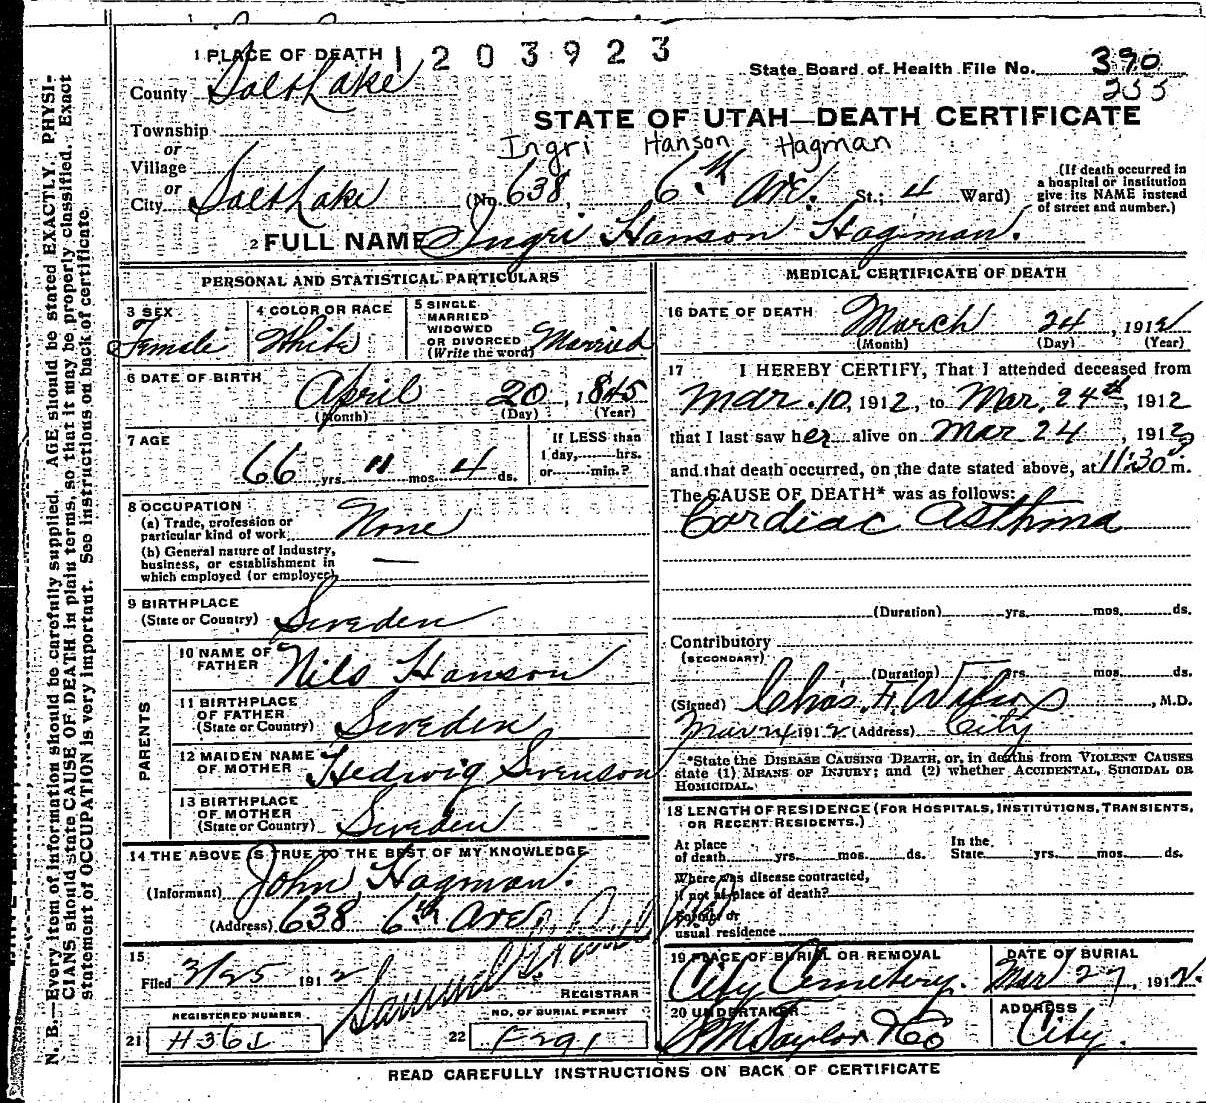 1 PLACE OF DEATH 1 2 0 3 9 2 3
State Board of Health File No. 390
County Salt Lake
Township
STATE OF UTAH—DEATH CERTIFICATE
or
Ingri Hanson Hagman
Village
or
City Salt Lake (No. 638, 6th Ave. St.; 4 Ward)
(If death occurred in
a hospital or institution
give its NAME instead
of street and number.)
2 FULL NAME Ingri Hanson Hagman.
PERSONAL AND STATISTICAL PARTICULARS
3 SEX Female
4 COLOR OR RACE White
5 SINGLE
MARRIED
WIDOWED
OR DIVORCED
(Write the word) Married
6 DATE OF BIRTH April 20, 1845
(Month) (Day) (Year)
7 AGE
66 yrs. 11 mos. 4 ds.
If LESS than
1 day, hrs.
or min.?
8 OCCUPATION
(a) Trade, profession or
particular kind of work None
(b) General nature of Industry,
business, or establishment in
which employed (or employer) —
9 BIRTHPLACE
(State or Country) Sweden
PARENTS
10 NAME OF
FATHER Nils Hanson
11 BIRTHPLACE
OF FATHER
(State or Country) Sweden
12 MAIDEN NAME
OF MOTHER Hedwig Svenson
13 BIRTHPLACE
OF MOTHER
(State or Country) Sweden
14 THE ABOVE IS TRUE TO THE BEST OF MY KNOWLEDGE
(Informant) John Hagman.
(Address) 638 6th Ave
15
Filed 3/25 1912 Samuel
REGISTRAR
REGISTERED NUMBER
21 H361
NO. OF BURIAL PERMIT
22 F291
MEDICAL CERTIFICATE OF DEATH
16 DATE OF DEATH March 24, 1912
(Month) (Day) (Year)
17 I HEREBY CERTIFY, That I attended deceased from
Mar. 10, 1912, to Mar. 24th, 1912
that I last saw her alive on Mar 24, 1912,
and that death occurred, on the date stated above, at 11:30 m.
The CAUSE OF DEATH* was as follows:
Cardiac Asthma
(Duration) yrs. mos. ds.
Contributory
(SECONDARY)
(Duration) yrs. mos. ds.
(Signed) Chas. F. Wilcox, M.D.
Mar 24 1912 (Address) City
*State the DISEASE CAUSING DEATH, or, in deaths from VIOLENT CAUSES
state (1) MEANS OF INJURY; and (2) whether ACCIDENTAL, SUICIDAL OR
HOMICIDAL.
18 LENGTH OF RESIDENCE (FOR HOSPITALS, INSTITUTIONS, TRANSIENTS,
OR RECENT RESIDENTS.)
At place
of death yrs. mos. ds.
In the
State yrs. mos. ds.
Where was disease contracted,
if not at place of death?
Former or
usual residence
19 PLACE OF BURIAL OR REMOVAL
City Cemetery.
DATE OF BURIAL
Mar 27, 1912.
20 UNDERTAKER
S M Taylor & Co
ADDRESS
City.
READ CAREFULLY INSTRUCTIONS ON BACK OF CERTIFICATE
N. B.—Every item of information should be carefully supplied. AGE should be stated EXACTLY. PHYSI-
CIANS should state CAUSE OF DEATH in plain terms, so that it may be properly classified. Exact
statement of OCCUPATION is very important. See instructions on back of certificate.